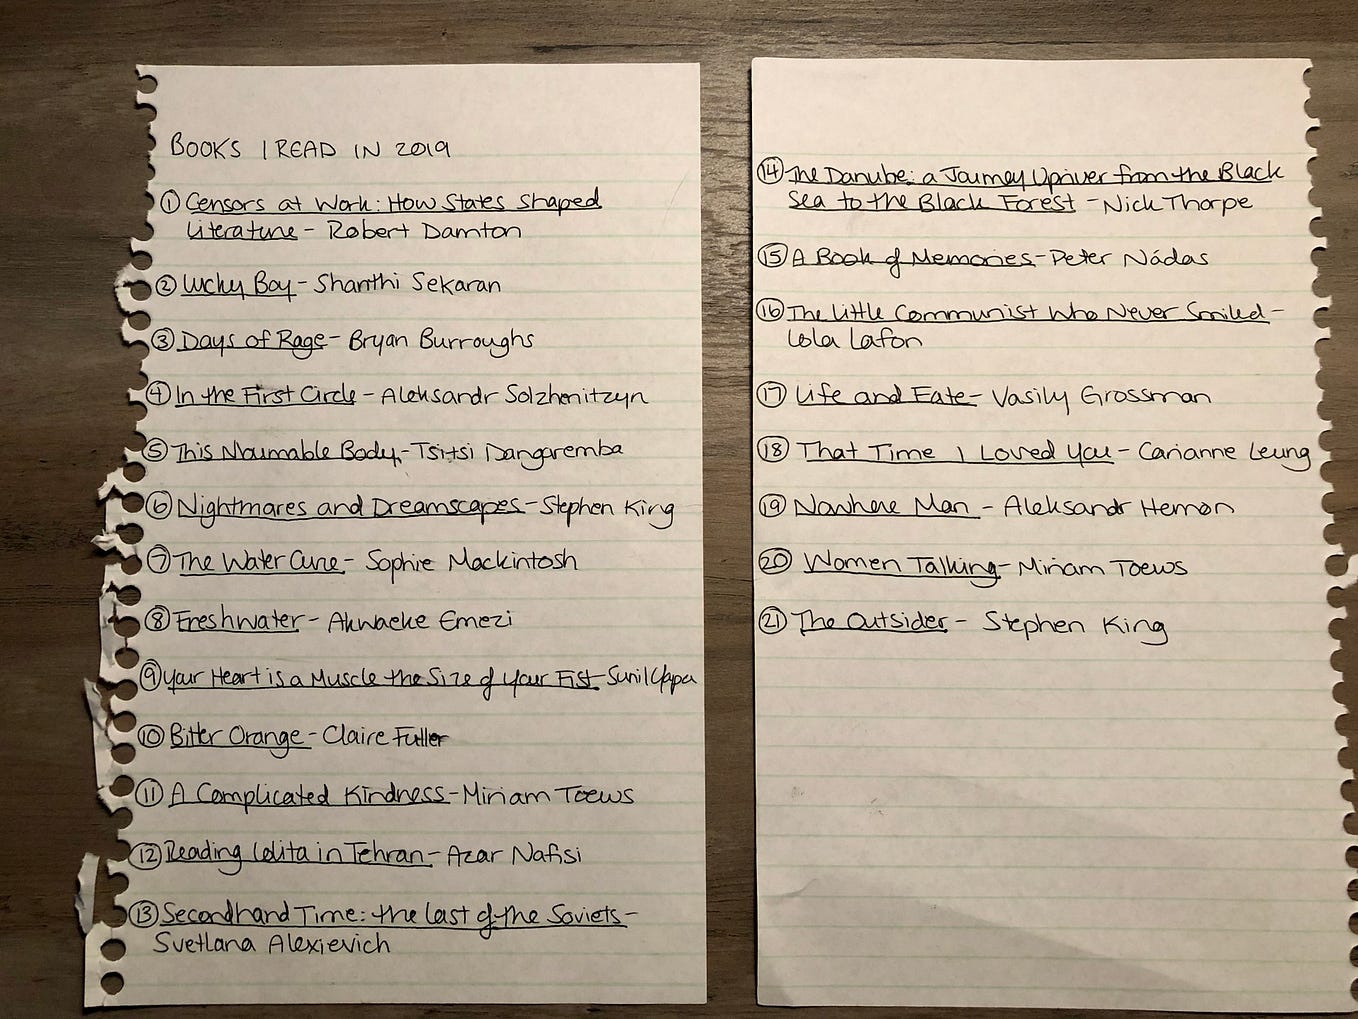 BOOKS I READ IN 2019
① Censors at Work: How States Shaped
Literature - Robert Darnton
② Lucky Boy - Shanthi Sekaran
③ Days of Rage - Bryan Burroughs
④ In the First Circle - Aleksandr Solzhenitzyn
⑤ This Mournable Body - Tsitsi Dangaremba
⑥ Nightmares and Dreamscapes - Stephen King
⑦ The Water Cure - Sophie Mackintosh
⑧ Freshwater - Akwaeke Emezi
⑨ Your Heart is a Muscle the Size of Your Fist - Sunil Yapa
⑩ Bitter Orange - Claire Fuller
⑪ A Complicated Kindness - Miriam Toews
⑫ Reading Lolita in Tehran - Azar Nafisi
⑬ Secondhand Time: the Last of the Soviets -
Svetlana Alexievich
⑭ The Danube: a Journey Upriver from the Black
Sea to the Black Forest - Nick Thorpe
⑮ A Book of Memories - Peter Nádas
⑯ The Little Communist Who Never Smiled -
Lola Lafon
⑰ Life and Fate - Vasily Grossman
⑱ That Time I Loved You - Carianne Leung
⑲ Nowhere Man - Aleksandr Hemon
⑳ Women Talking - Miriam Toews
㉑ The Outsider - Stephen King